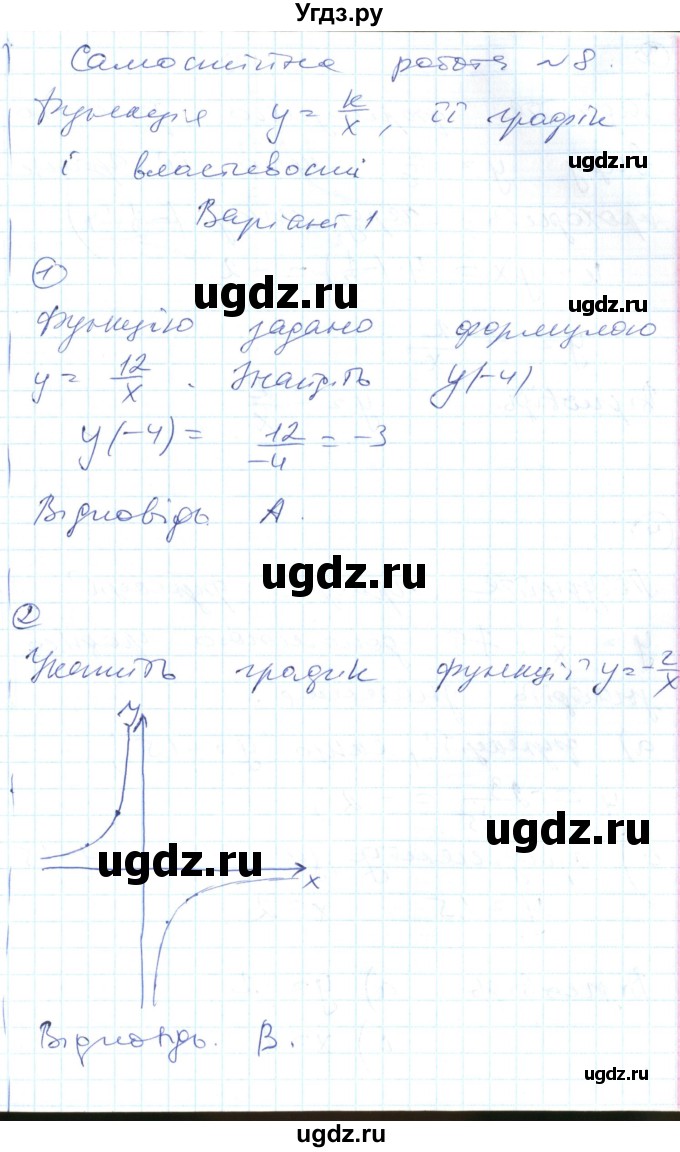 Угдз.ру
Самостійна робота №8.
Функція y = k/x, її графік
ugdz.ru
і властивості
Варіант 1
1
ugdz.ru
ugdz.ru
Функцію задано формулою
y = 12/x. Знайдіть y(-4)
y(-4) = 12/-4 = -3
Відповідь А.
ugdz.ru
2
Укажіть графік функції y = -2/x
y
ugdz.ru
ugdz.ru
x
Відповідь. В.
ugdz.ru
ugdz.ru